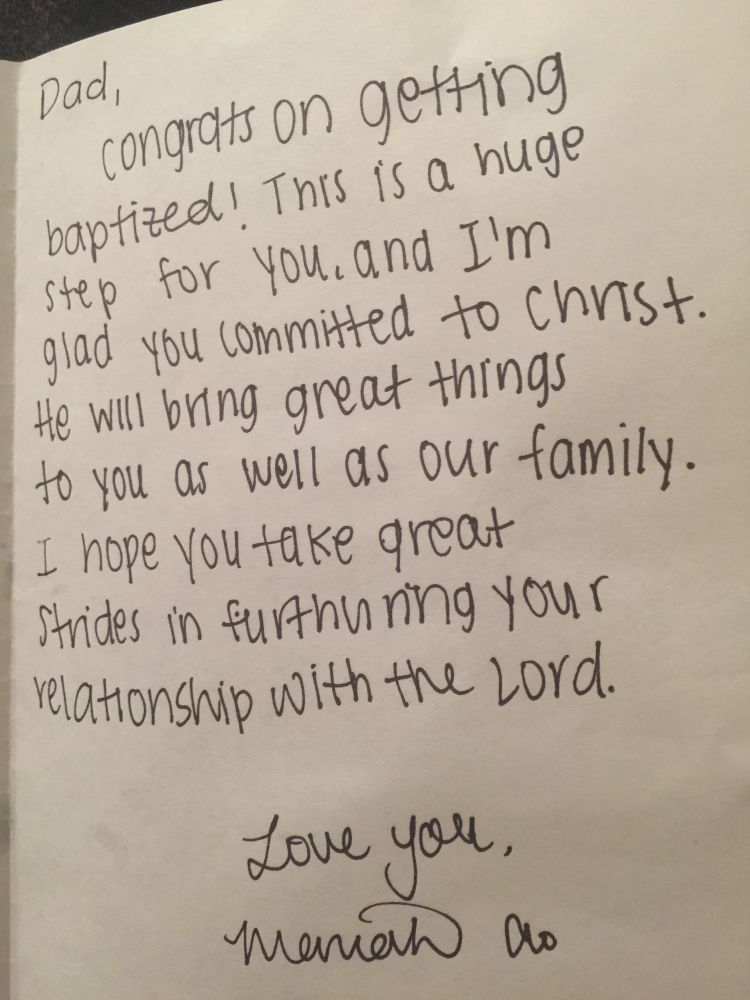 Dad,
congrats on getting
baptized! This is a huge
step for you. and I'm
glad you committed to Christ.
He will bring great things
to you as well as our family.
I hope you take great
strides in furthuring your
relationship with the Lord.
Love you,